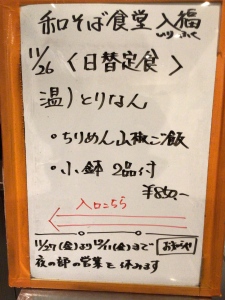 和そば食堂 入福
いり ふく
11/26 〈日替定食〉
温)とりなん
・ちりめん山椒ご飯
・小鉢 2品付
¥850.-
入口こちら
11/27(金)より12/11(金)まで
夜の部の営業を休みます